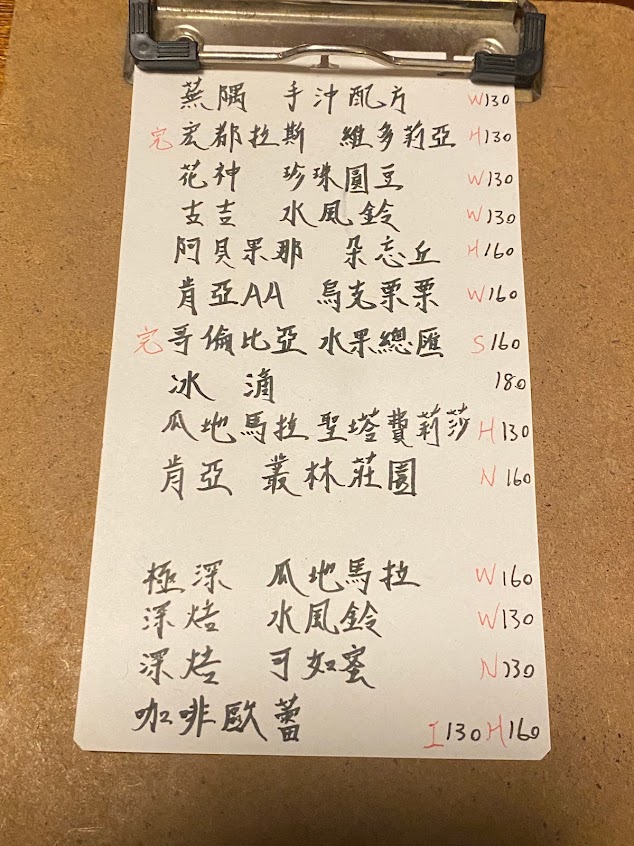 蕪隅 手沖配方 W130
完 宏都拉斯 維多莉亞 H130
花神 珍珠圓豆 W130
古吉 水風鈴 W130
阿貝果那 朵忘丘 H160
肯亞AA 烏支栗栗 W160
完 哥倫比亞 水果總匯 S160
冰滴 180
瓜地馬拉 聖塔費莉莎 H130
肯亞 叢林莊園 N160
極深 瓜地馬拉 W160
深焙 水風鈴 W130
深焙 可如蜜 N130
咖啡歐蕾 I130 H160